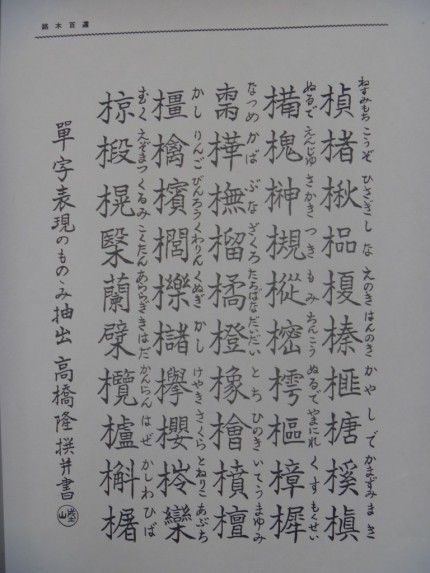 銘木百選
楨楮楸榀榎榛榧榶榽槇
ねずみもち こうぞ ひさぎ しな えのき はんのき かや しで かまずみ まき
槐榊槻樅樒樗樞樟樨
ぬるで えんじゅ さかき つき もみ ちんこう ぬるで やまにれ くす もくせい
棗樺橅榴橘橙橡檜橨檀
なつめ かば ぶな ざくろ たちばな だいだい とち ひのき いてう まゆみ
橿檎檳櫟櫧欅櫻欒
かし りんご びんろう くわりん くぬぎ かし けやき さくら とねりこ あぶち
椋椴榥蘭檗欖櫨槲
むく えぞまつ くるみ こくたん あららぎ きはだ かんらん はぜ かしわ ひば
單字表現のもののみ抽出 高橋隆撰并書